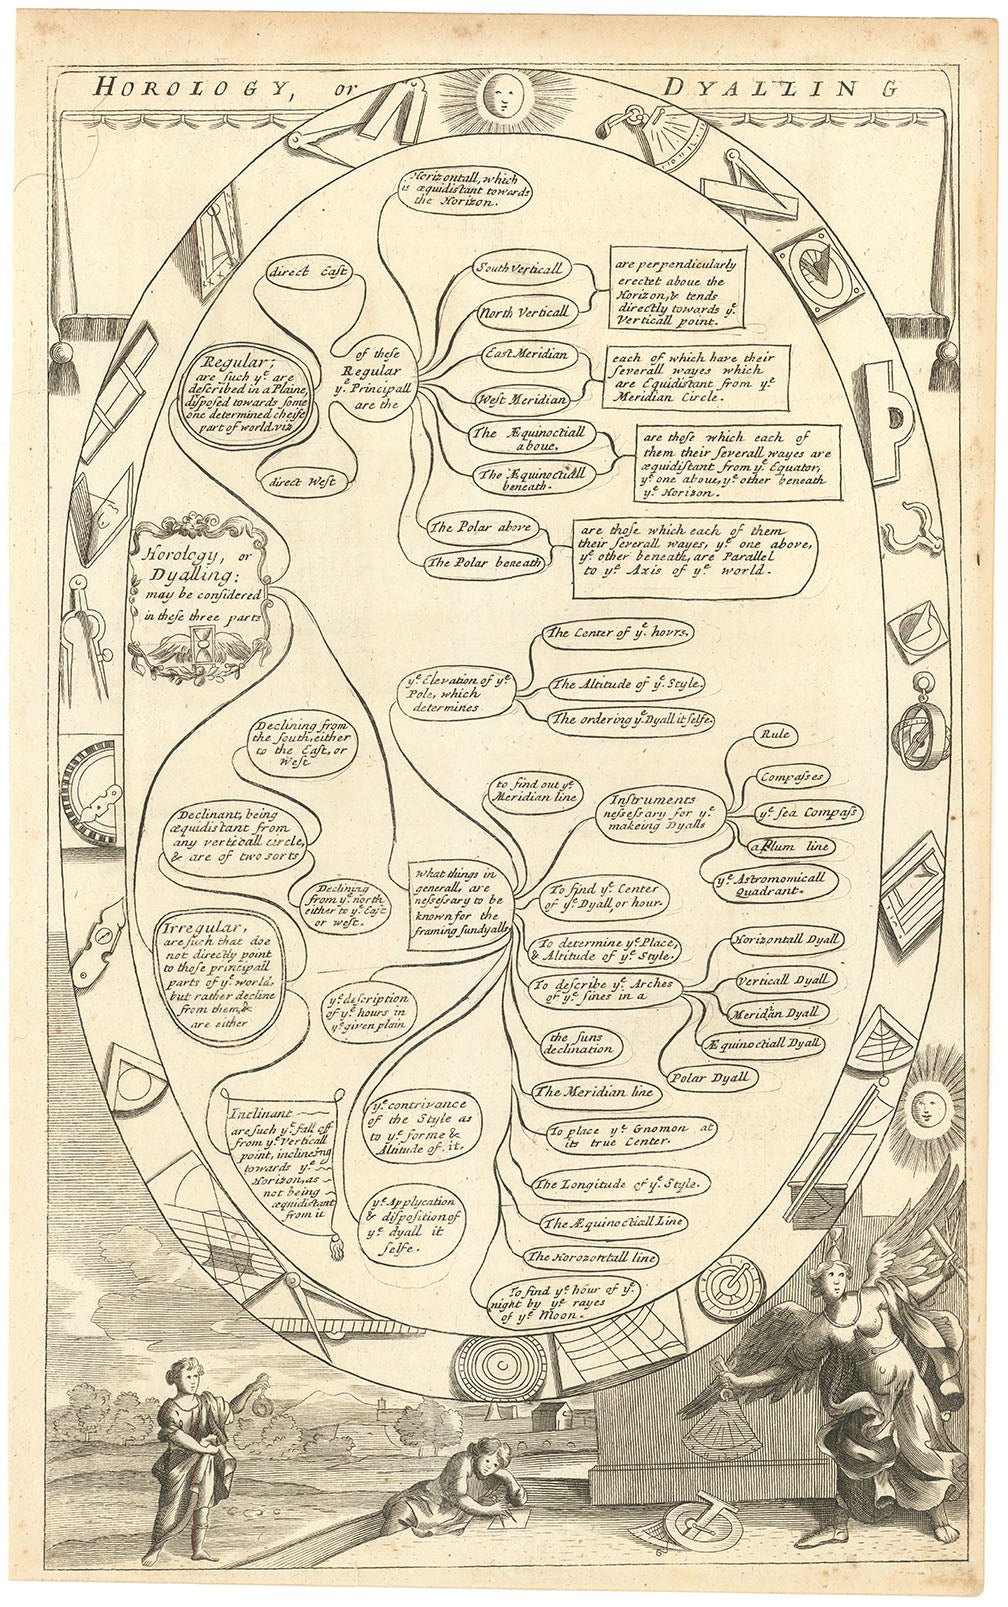 HOROLOGY, or DYALLING
Horizontall, which
is æquidistant towards
the Horizon.
direct East
of these
Regular
yᵉ Principall
are the
direct West
Regular;
are such yᵉ are
described in a Plaine,
disposed towards some
one determined cheife
part of world. viz
South Verticall
North Verticall
are perpendicularly
erectet aboue the
Horizon, & tends
directly towards yᵉ
Verticall point.
East Meridian
West Meridian
each of which have their
severall wayes which
are Equidistant from yᵉ
Meridian Circle.
The Æquinoctiall
aboue.
The Æquinoctiall
beneath.
are those which each of
them their severall wayes are
æquidistant from yᵉ Equator,
yᵉ one aboue, yᵉ other beneath
yᵉ Horizon.
The Polar above
The Polar beneath
are those which each of them
their severall wayes, yᵉ one above,
yᵉ other beneath, are Parallel
to yᵉ Axis of yᵉ world.
Horology, or
Dyalling:
may be considered
in these three parts
yᵉ Elevation of yᵉ
Pole, which
determines
The Center of yᵉ hovrs.
The Altitude of yᵉ Style.
The ordering yᵉ Dyall it selfe.
Declining from
the south, either
to the East, or
West
Declinant, being
æquidistant from
any verticall circle,
& are of two sorts
Declining
from yᵉ north
either to yᵉ East
or west.
Irregular,
are such that doe
not directly point
to those principall
parts of yᵉ world,
but rather decline
from them, &
are either
Inclinant
are such yᵉ fall off
from yᵉ Verticall
point, inclineing
towards yᵉ
Horizon, as
not being
æquidistant
from it
what things in
generall, are
nessessary to be
known for the
framing sundyalls
to find out yᵉ
Meridian line
Instruments
nessessary for yᵉ
makeing Dyalls
Rule
Compasses
yᵉ sea Compass
a Plum line
yᵉ Astromomicall
Quadrant.
To find yᵉ Center
of yᵉ Dyall, or hour.
To determine yᵉ Place,
& Altitude of yᵉ Style.
To describe yᵉ Arches
of yᵉ sines in a
Horizontall Dyall
Verticall Dyall
Meridan Dyall
Æquinoctiall Dyall
Polar Dyall
the suns
declination
The Meridian line
To place yᵉ Gnomon at
its true Center.
The Longitude of yᵉ Style.
The Æquinoctiall Line
The Horozontall line
To find yᵉ hour of yᵉ
night by yᵉ rayes
of yᵉ Moon.
yᵉ description
of yᵉ hours in
yᵉ given plain
yᵉ contrivance
of the Style as
to yᵉ forme &
Altitude of it.
yᵉ Applycation
& disposition of
yᵉ dyall it
selfe.